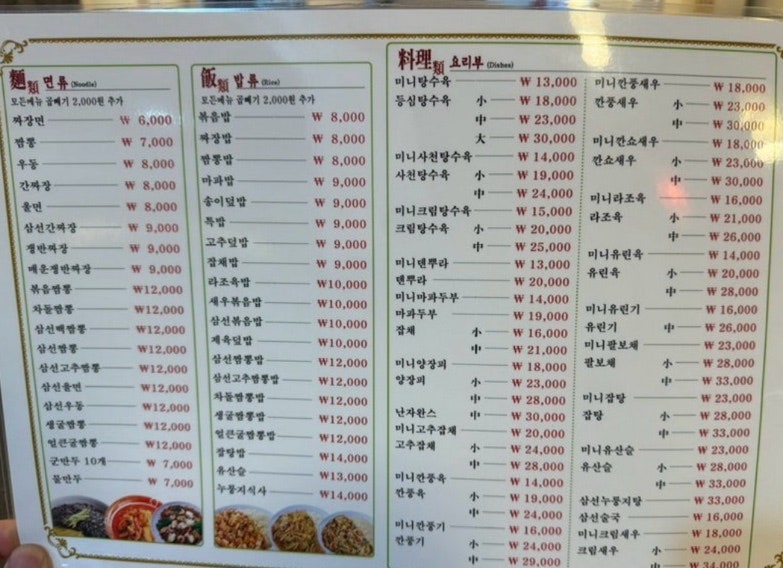 麵類 면류 (Noodle)
모든메뉴 곱빼기 2,000원 추가
짜장면 ₩ 6,000
짬뽕 ₩ 7,000
우동 ₩ 8,000
간짜장 ₩ 8,000
울면 ₩ 8,000
삼선간짜장 ₩ 9,000
쟁반짜장 ₩ 9,000
매운쟁반짜장 ₩ 9,000
볶음짬뽕 ₩12,000
차돌짬뽕 ₩12,000
삼선백짬뽕 ₩12,000
삼선짬뽕 ₩12,000
삼선고추짬뽕 ₩12,000
삼선울면 ₩12,000
삼선우동 ₩12,000
생굴짬뽕 ₩12,000
얼큰굴짬뽕 ₩12,000
군만두 10개 ₩ 7,000
물만두 ₩ 7,000
飯類 밥류 (Rice)
모든메뉴 곱빼기 2,000원 추가
볶음밥 ₩ 8,000
짜장밥 ₩ 8,000
짬뽕밥 ₩ 8,000
마파밥 ₩ 9,000
송이덮밥 ₩ 9,000
특밥 ₩ 9,000
고추덮밥 ₩ 9,000
잡채밥 ₩ 9,000
라조육밥 ₩10,000
새우볶음밥 ₩10,000
삼선볶음밥 ₩10,000
제육덮밥 ₩10,000
삼선짬뽕밥 ₩12,000
삼선고추짬뽕밥 ₩12,000
차돌짬뽕밥 ₩12,000
생굴짬뽕밥 ₩12,000
얼큰굴짬뽕밥 ₩12,000
잡탕밥 ₩14,000
유산슬 ₩13,000
누룽지식사 ₩14,000
料理類 요리부 (Dishes)
미니탕수육 ₩ 13,000
등심탕수육 小 ₩ 18,000
中 ₩ 23,000
大 ₩ 30,000
미니사천탕수육 ₩ 14,000
사천탕수육 小 ₩ 19,000
中 ₩ 24,000
미니크림탕수육 ₩ 15,000
크림탕수육 小 ₩ 20,000
中 ₩ 25,000
미니덴뿌라 ₩ 13,000
덴뿌라 ₩ 20,000
미니마파두부 ₩ 14,000
마파두부 ₩ 19,000
잡채 小 ₩ 16,000
中 ₩ 21,000
미니양장피 ₩ 18,000
양장피 小 ₩ 23,000
中 ₩ 28,000
난자완스 中 ₩ 30,000
미니고추잡채 ₩ 20,000
고추잡채 小 ₩ 24,000
中 ₩ 28,000
미니깐풍육 ₩ 14,000
깐풍육 小 ₩ 19,000
中 ₩ 24,000
미니깐풍기 ₩ 16,000
깐풍기 小 ₩ 24,000
中 ₩ 29,000
미니깐풍새우 ₩ 18,000
깐풍새우 小 ₩ 23,000
中 ₩ 30,000
미니깐쇼새우 ₩ 18,000
깐쇼새우 小 ₩ 23,000
中 ₩ 30,000
미니라조육 ₩ 16,000
라조육 小 ₩ 21,000
中 ₩ 26,000
미니유린육 ₩ 14,000
유린육 小 ₩ 20,000
中 ₩ 28,000
미니유린기 ₩ 16,000
유린기 中 ₩ 26,000
미니팔보채 ₩ 23,000
팔보채 小 ₩ 28,000
中 ₩ 33,000
미니잡탕 ₩ 23,000
잡탕 小 ₩ 28,000
中 ₩ 33,000
미니유산슬 ₩ 23,000
유산슬 小 ₩ 28,000
中 ₩ 33,000
삼선누룽지탕 ₩ 33,000
삼선술국 ₩ 16,000
미니크림새우 ₩ 18,000
크림새우 小 ₩ 24,000
中 ₩ 34,000